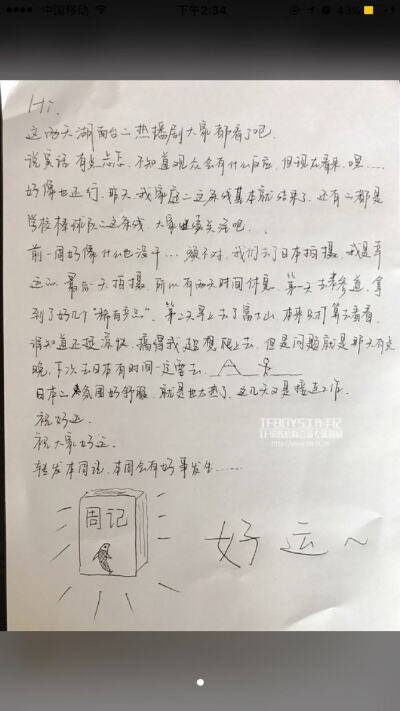 中国移动
下午2:34
43%
Hi,
这两天湖南台的热播剧大家都看了吧.
说实话有些忐忑, 不知道观众会有什么反应, 但现在看来, 嘿……
好像也还行, 昨天我家庭的这条线基本就结束了, 还有的都是
学校棒球队的这条线, 大家继续关注吧.
前一周好像什么也没干… 额不对, 我们去了日本拍摄, 我是幸
运的最后一天拍摄, 所以有两天时间休息, 第一天去表参道, 拿
到了好几个"稀有
第二天早上去了富士山, 本来只打算去看看,
谁知道还挺凉快, 搞得我超想爬上去, 但是问题就是那天有点
晚, 下次去日本有时间一定要去.
日本的氛围好舒服, 就是也太热了, 这几天又是接连工作.
祝好运.
祝大家好运.
转发本周记, 本周会有好事发生……
周记
好运~
TFBOYS工作记